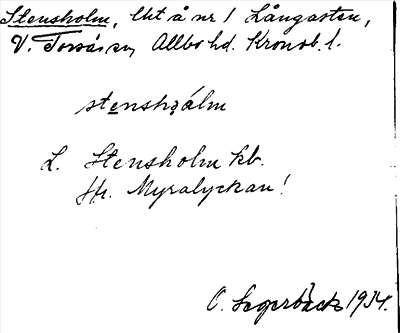 Stensholm, lht å nr 1 Långasten,
V. Torsås sn, Allbo hd. Kronob. l.
stenshålm
L. Stensholm kb.
Jfr. Myralyckan!
O. Segerbäck 1934.